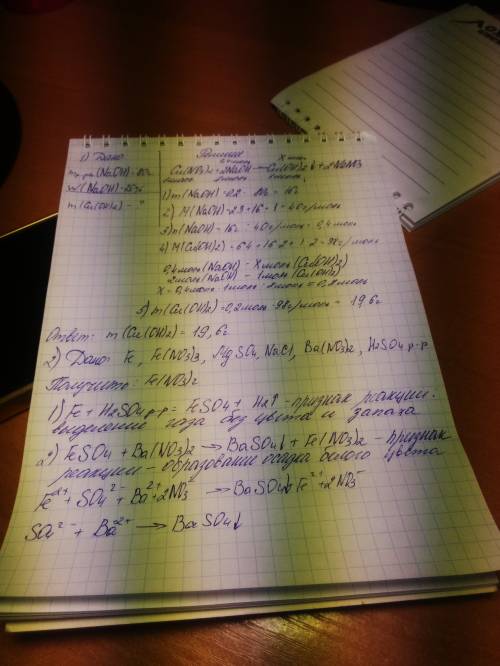 1) Дано:
Решение
0,4 моль X моль
Cu(NO3)2 + 2NaOH → Cu(OH)2↓ + 2NaNO3
2моль 1моль
(NaOH) =
(NaOH) =
m(Cu(OH)2) - ?
1) m(NaOH) = 0,2 · = 16г
2) M(NaOH) = 23 + 16 + 1 = 40г/моль
3) n(NaOH) = 16г : 40г/моль = 0,4 моль
4) M(Cu(OH)2) = 64 + 16·2 + 1·2 = 98г/моль
0,4моль (NaOH) - X моль (Cu(OH)2)
2моль (NaOH) - 1моль (Cu(OH)2)
X = 0,4моль · 1моль : 2моль = 0,2моль
5) m(Cu(OH)2) = 0,2моль · 98г/моль = 19,6г
Ответ: m(Cu(OH)2) = 19,6г
2) Дано: Fe, Fe(NO3)3, MgSO4, NaCl, Ba(NO3)2, H2SO4 р-р
Получить: Fe(NO3)2
1) Fe + H2SO4 р-р = FeSO4 + H2↑ - признак реакции -
выделение газа без цвета и запаха
2) FeSO4 + Ba(NO3)2 → BaSO4↓ + Fe(NO3)2 - признак
реакции - образование осадка белого цвета
Fe2+ + SO4 2- + Ba2+ + 2NO3 - → BaSO4↓ + Fe2+ + 2NO3 -
SO4 2- + Ba2+ → BaSO4↓